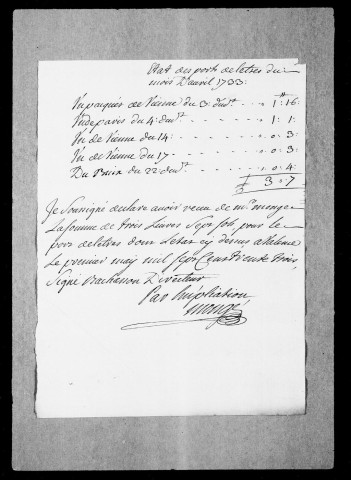 Etat des ports de letres du
mois D'avril 1733:
Un paquet de Vienne du 3: dud.t 1 tt 16:
Un de paris du 4: dud.t 1: 1:
Un de Vienne du 14: 0: 3:
Un de Vienne du 17 0: 3:
Du du 22 dud.t 0: 4:
3 " 7
Je Soussigné declare avoir receu de m.r monge
La somme de trois Livres Sept sols pour le
port de letres dont L'etat cy dessus a
Le premier may mil sept Cent trente trois,
Signé Directeur
Par Ampliation
monge